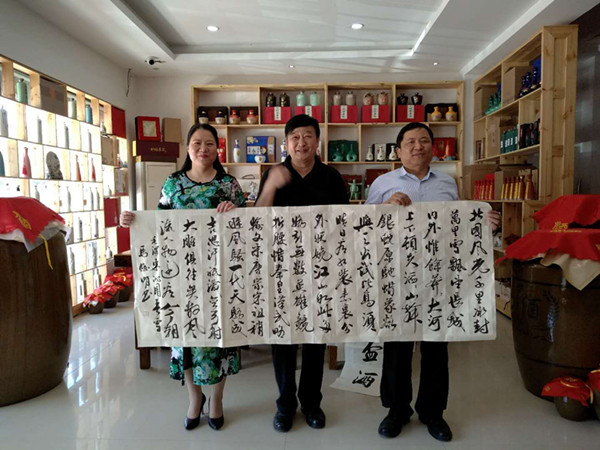 北国风光千里冰封
万里雪飘望长城
内外惟馀莽莽大河
上下顿失滔滔山舞
银蛇原驰蜡象欲
与天公试比高须
晴日看红装素裹分
外妖娆江山如此多
娇引无数英雄竞
折腰惜秦皇汉武略
输文采唐宗宋祖稍
逊风骚一代天骄成
吉思汗只识弯弓射
大雕俱往矣数风
流人物还看今朝
毛泽东沁园春雪
酒